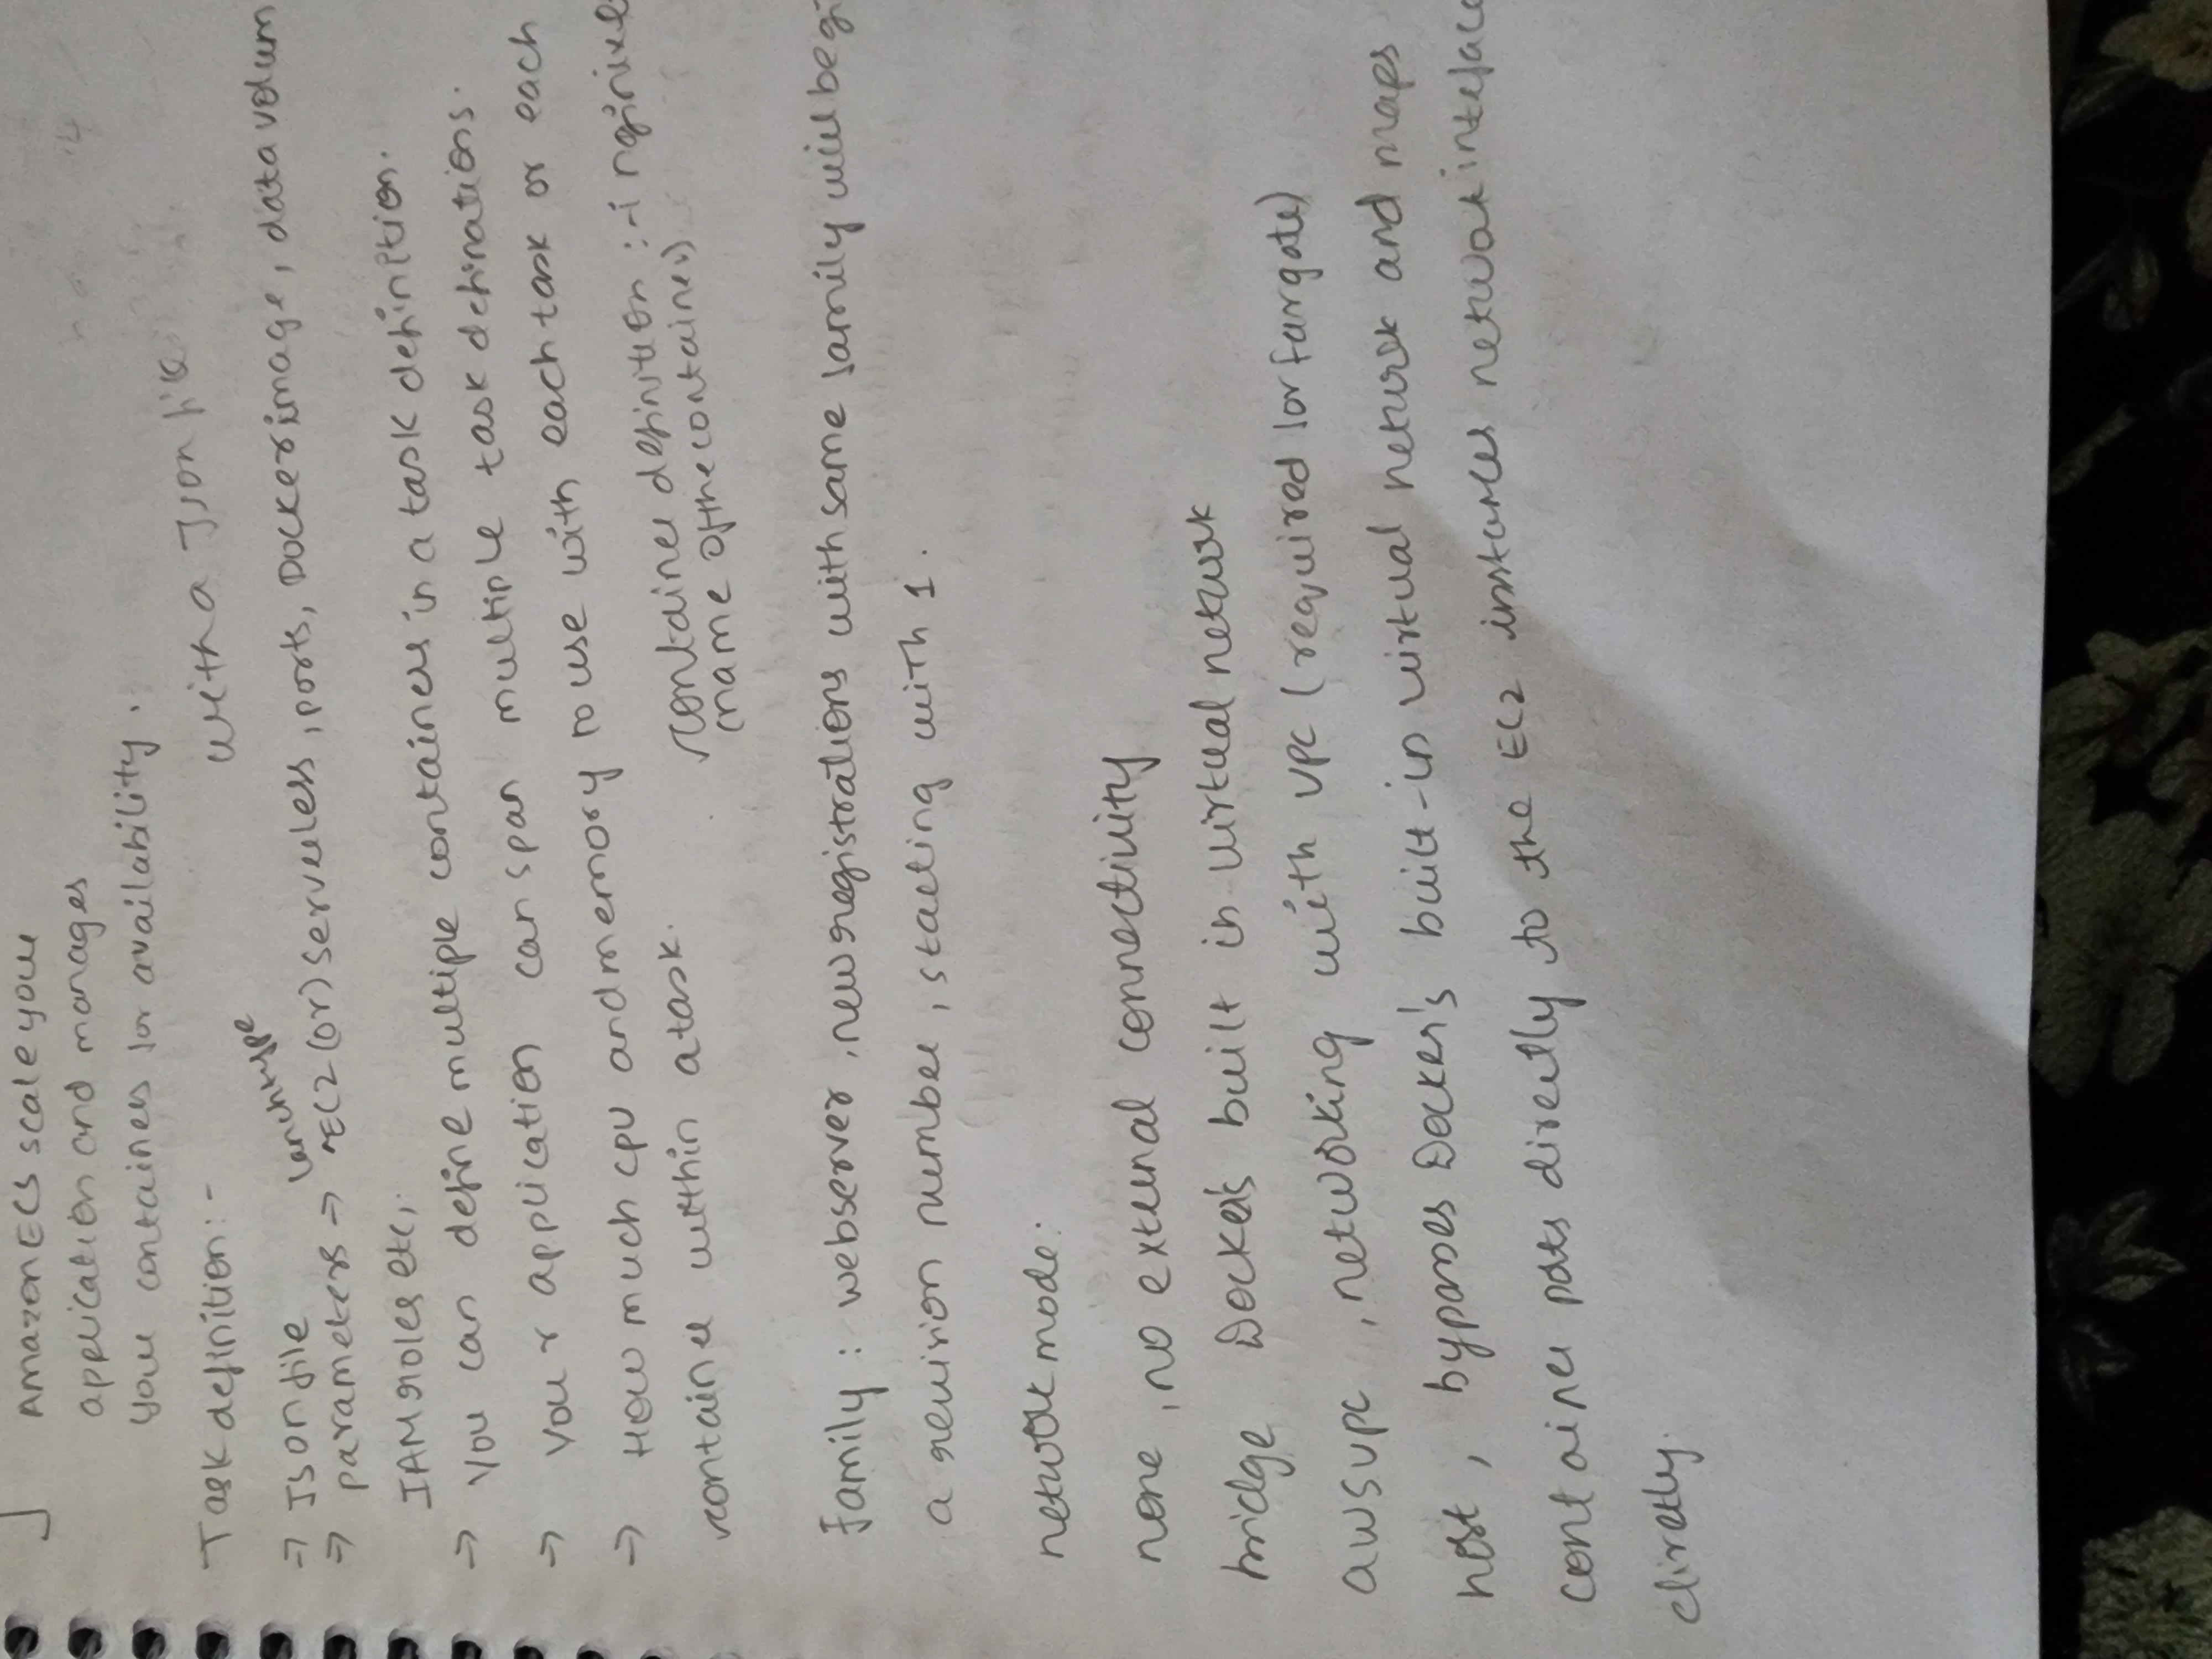 Amazon ECS scale your
application and manages
your containers for availability.
Task definition:-
with a Json file
→ Json file
lanchtype
→ parameters → ^EC2 (or) serverless, ports, Docker image, data volum
IAM roles etc,.
→ You can define multiple containers in a task definition.
→ Your application can span multiple task definations.
→ How much cpu and memory to use with each task or each
container within a task.
container definition :-
(name of the container)
Family : webserver, new registrations with same family will be gi
a revision number, starting with 1.
network mode:
none, no external connectivity
bridge Docker's built in virtual network
awsvpc, networking with vpc (required for fargate)
host, bypasses Docker's built-in virtual network and maps
container ports directly to the EC2 instances network inteface
diretly.